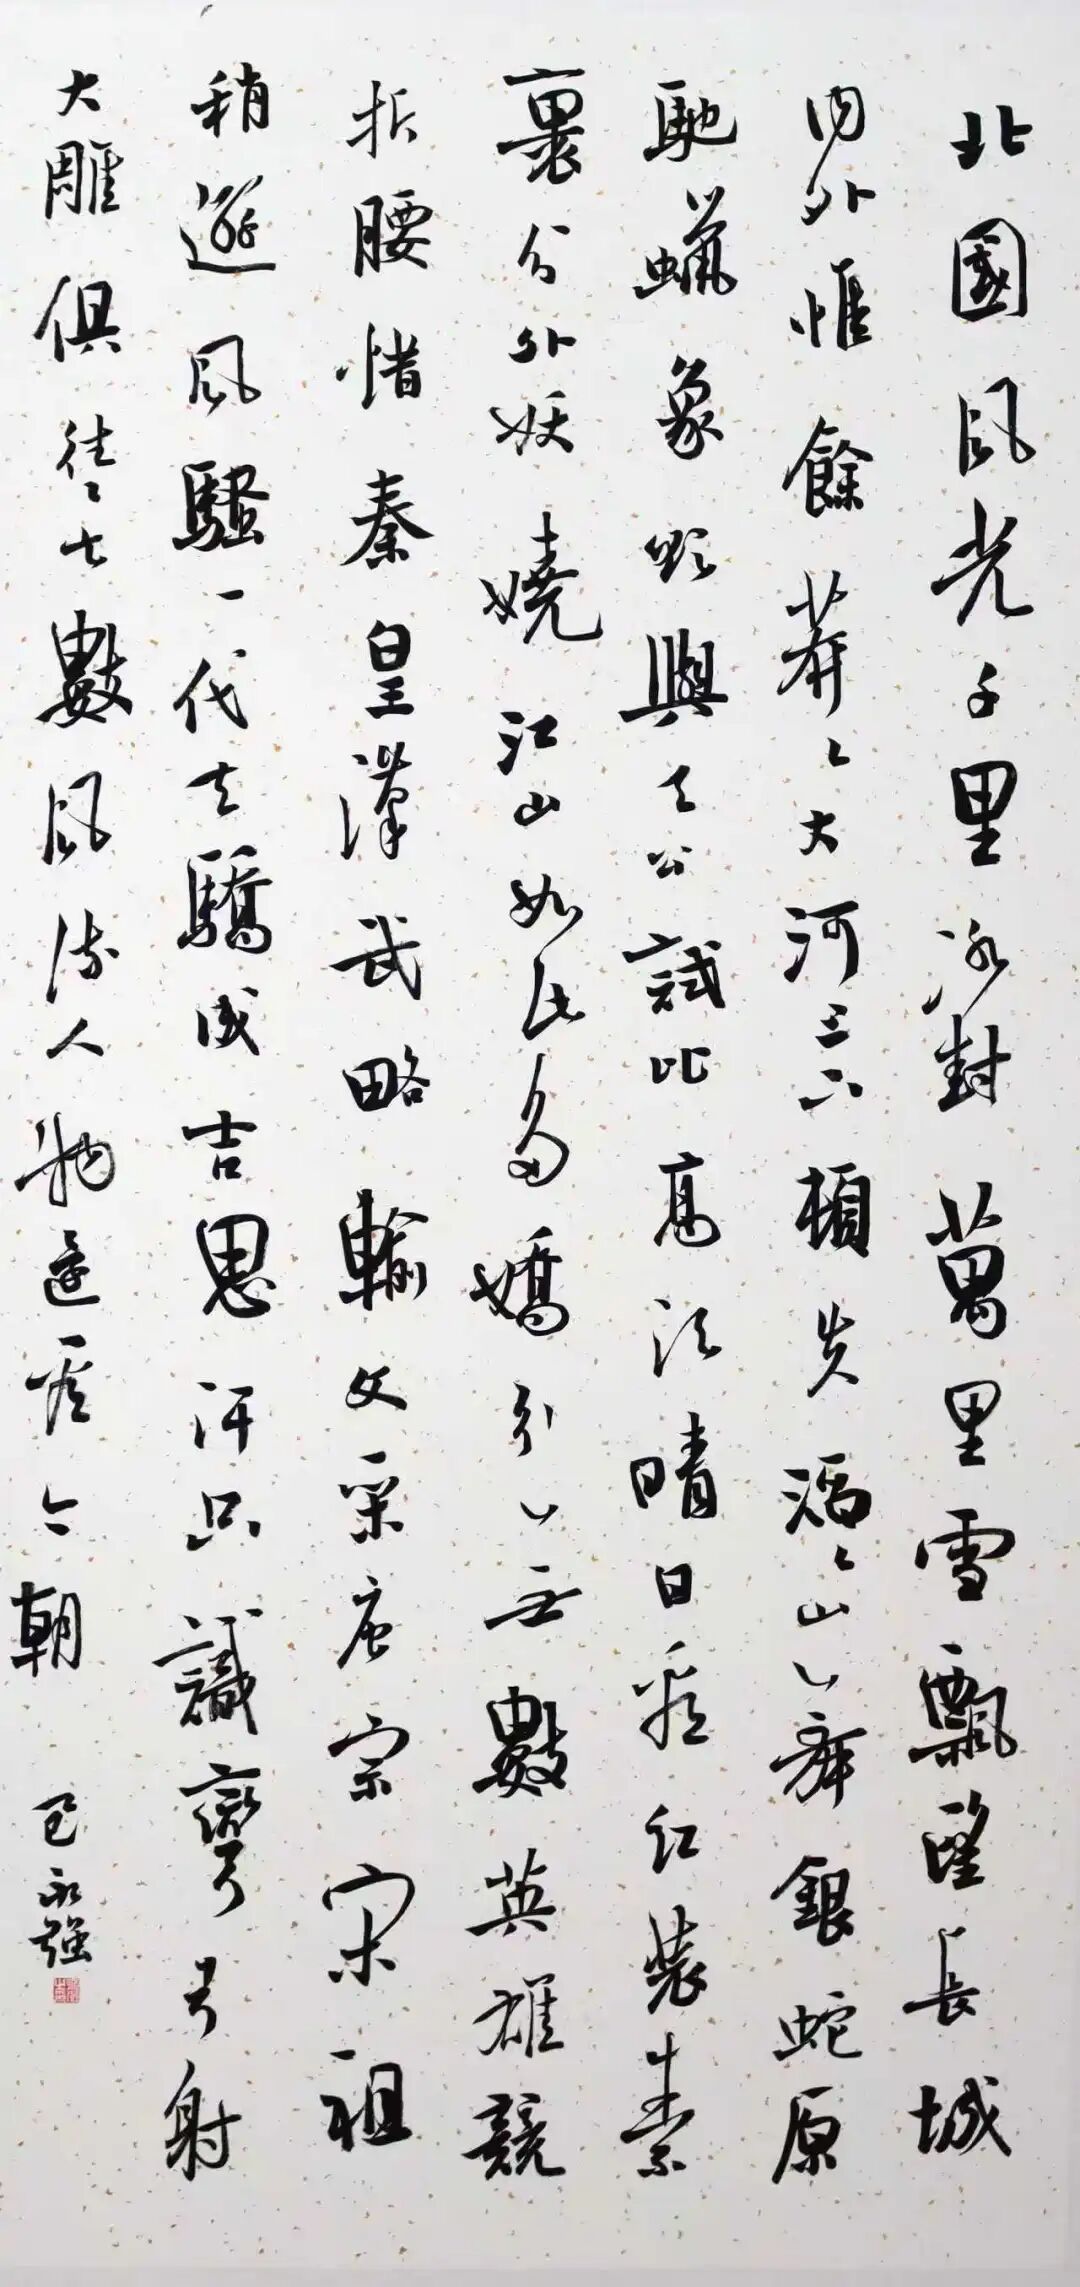 北國風光千里冰封萬里雪飄望長城
内外惟餘莽々大河上下頓失滔々山舞銀蛇原
馳蠟象欲與天公試比高須晴日看紅裝素
裹分外妖嬈江山如此多嬌引無數英雄競
折腰惜秦皇漢武略輸文采唐宗宋祖
稍遜風騷一代天驕成吉思汗只識彎弓射
大雕俱往矣數風流人物還看今朝 永强